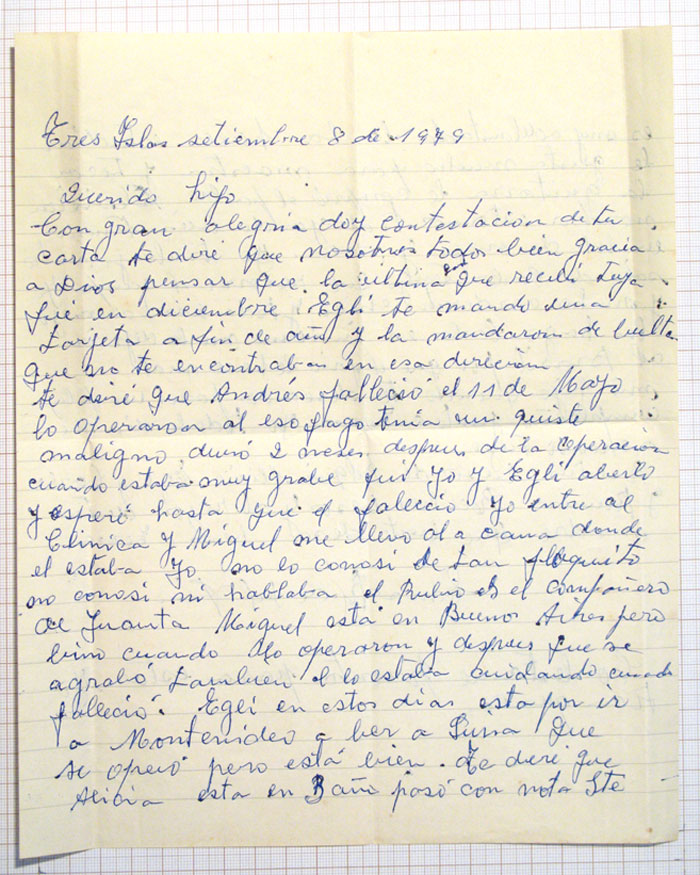 Tres Islas setiembre 8 de 1979
Querido hijo
Con gran alegria doy contestacion de tu
carta te diré que nosotros todos bien gracia
a Dios pensar que la ultima que recibi tuya
fué en diciembre Eglí te mando una
tarjeta a fin de año y la mandaron de buelta
que no te encontraban en esa direcion
te diré que Andrés falleció el 11 de Mayo
lo operaron al esofago tenia un quiste
maligno duró 2 meses despues de la operación
cuando estaba muy grabe fui yo y Eglí
y esperó hasta que el falecio yo entre al
Clinica y Miguel me llevo a la cama donde
el estaba yo no lo conosi de tan flaquito
no conosi ni hablaba el Rubio es el compañero
de Juanita Miguel está en Buenos Aires pero
bino cuando lo operaron y despues que se
agrabó tambien el lo estaba cuidando cuando
falleció. Eglí en estos días esta por ir
a Montevideo a ber a que
se operó pero está bien. Te diré que
Alicia esta en 3 año pasó con nota Ste